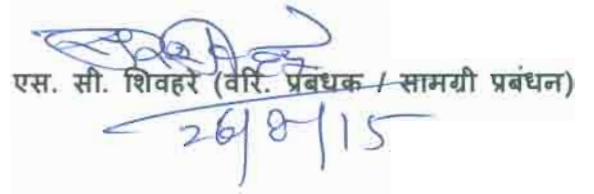 एस. सी. शिवहरे (वरि. प्रबंधक / सामग्री प्रबंधन)
26/8/15